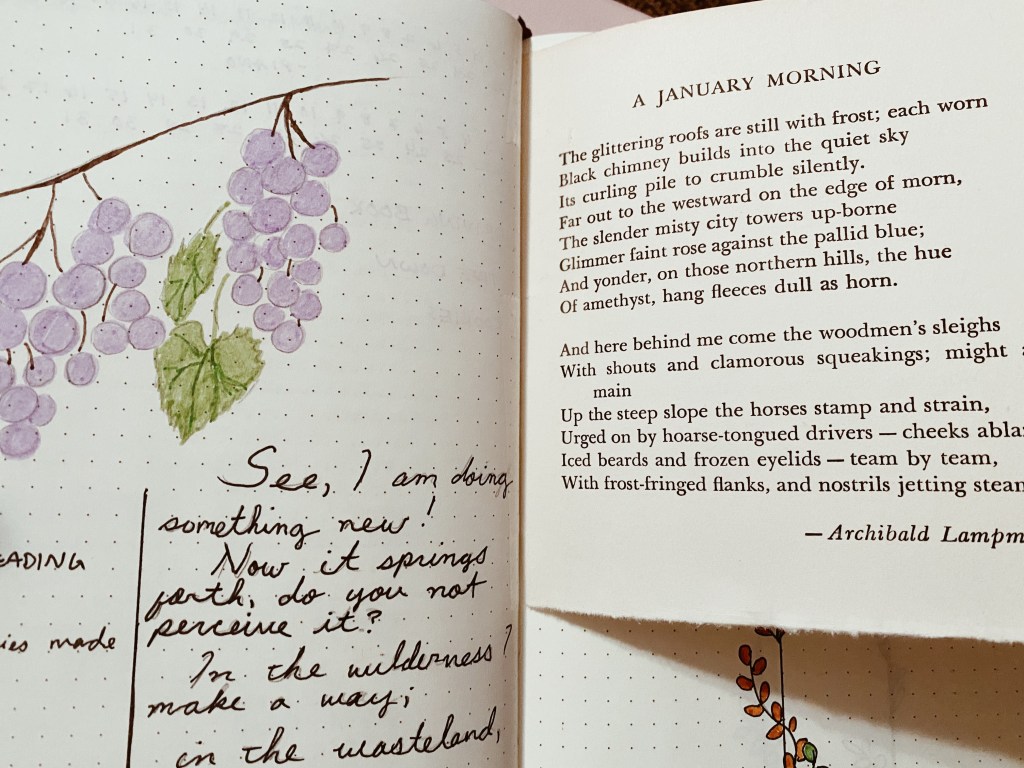 See, I am doing
something new!
Now it springs
forth, do you not
perceive it?
In the wilderness I
make a way;
in the wasteland,
EADING
ies made
A JANUARY MORNING
The glittering roofs are still with frost; each worn
Black chimney builds into the quiet sky
Its curling pile to crumble silently.
Far out to the westward on the edge of morn,
The slender misty city towers up-borne
Glimmer faint rose against the pallid blue;
And yonder, on those northern hills, the hue
Of amethyst, hang fleeces dull as horn.
And here behind me come the woodmen's sleighs
With shouts and clamorous squeakings; might a
main
Up the steep slope the horses stamp and strain,
Urged on by hoarse-tongued drivers — cheeks abla
Iced beards and frozen eyelids — team by team,
With frost-fringed flanks, and nostrils jetting steam
— Archibald Lampm